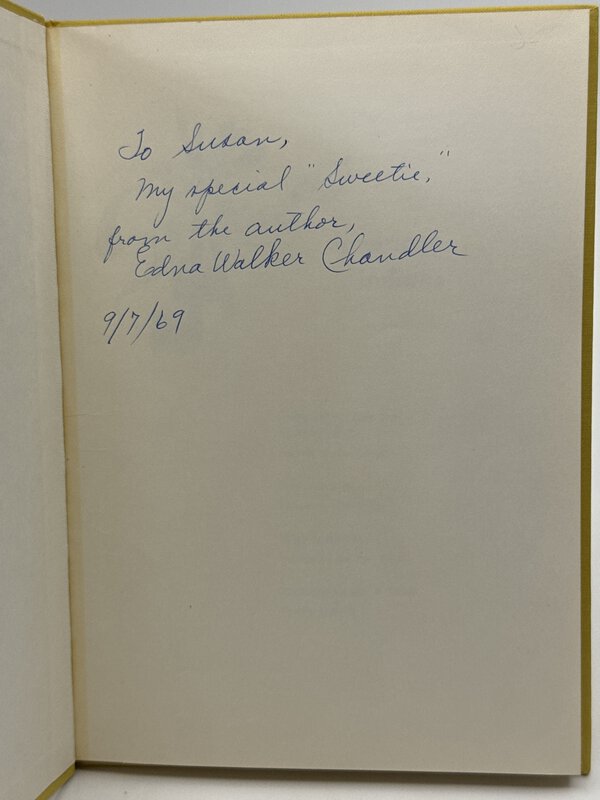 To Susan,
My special "Sweetie."
from the author,
Edna Walker Chandler
9/7/69